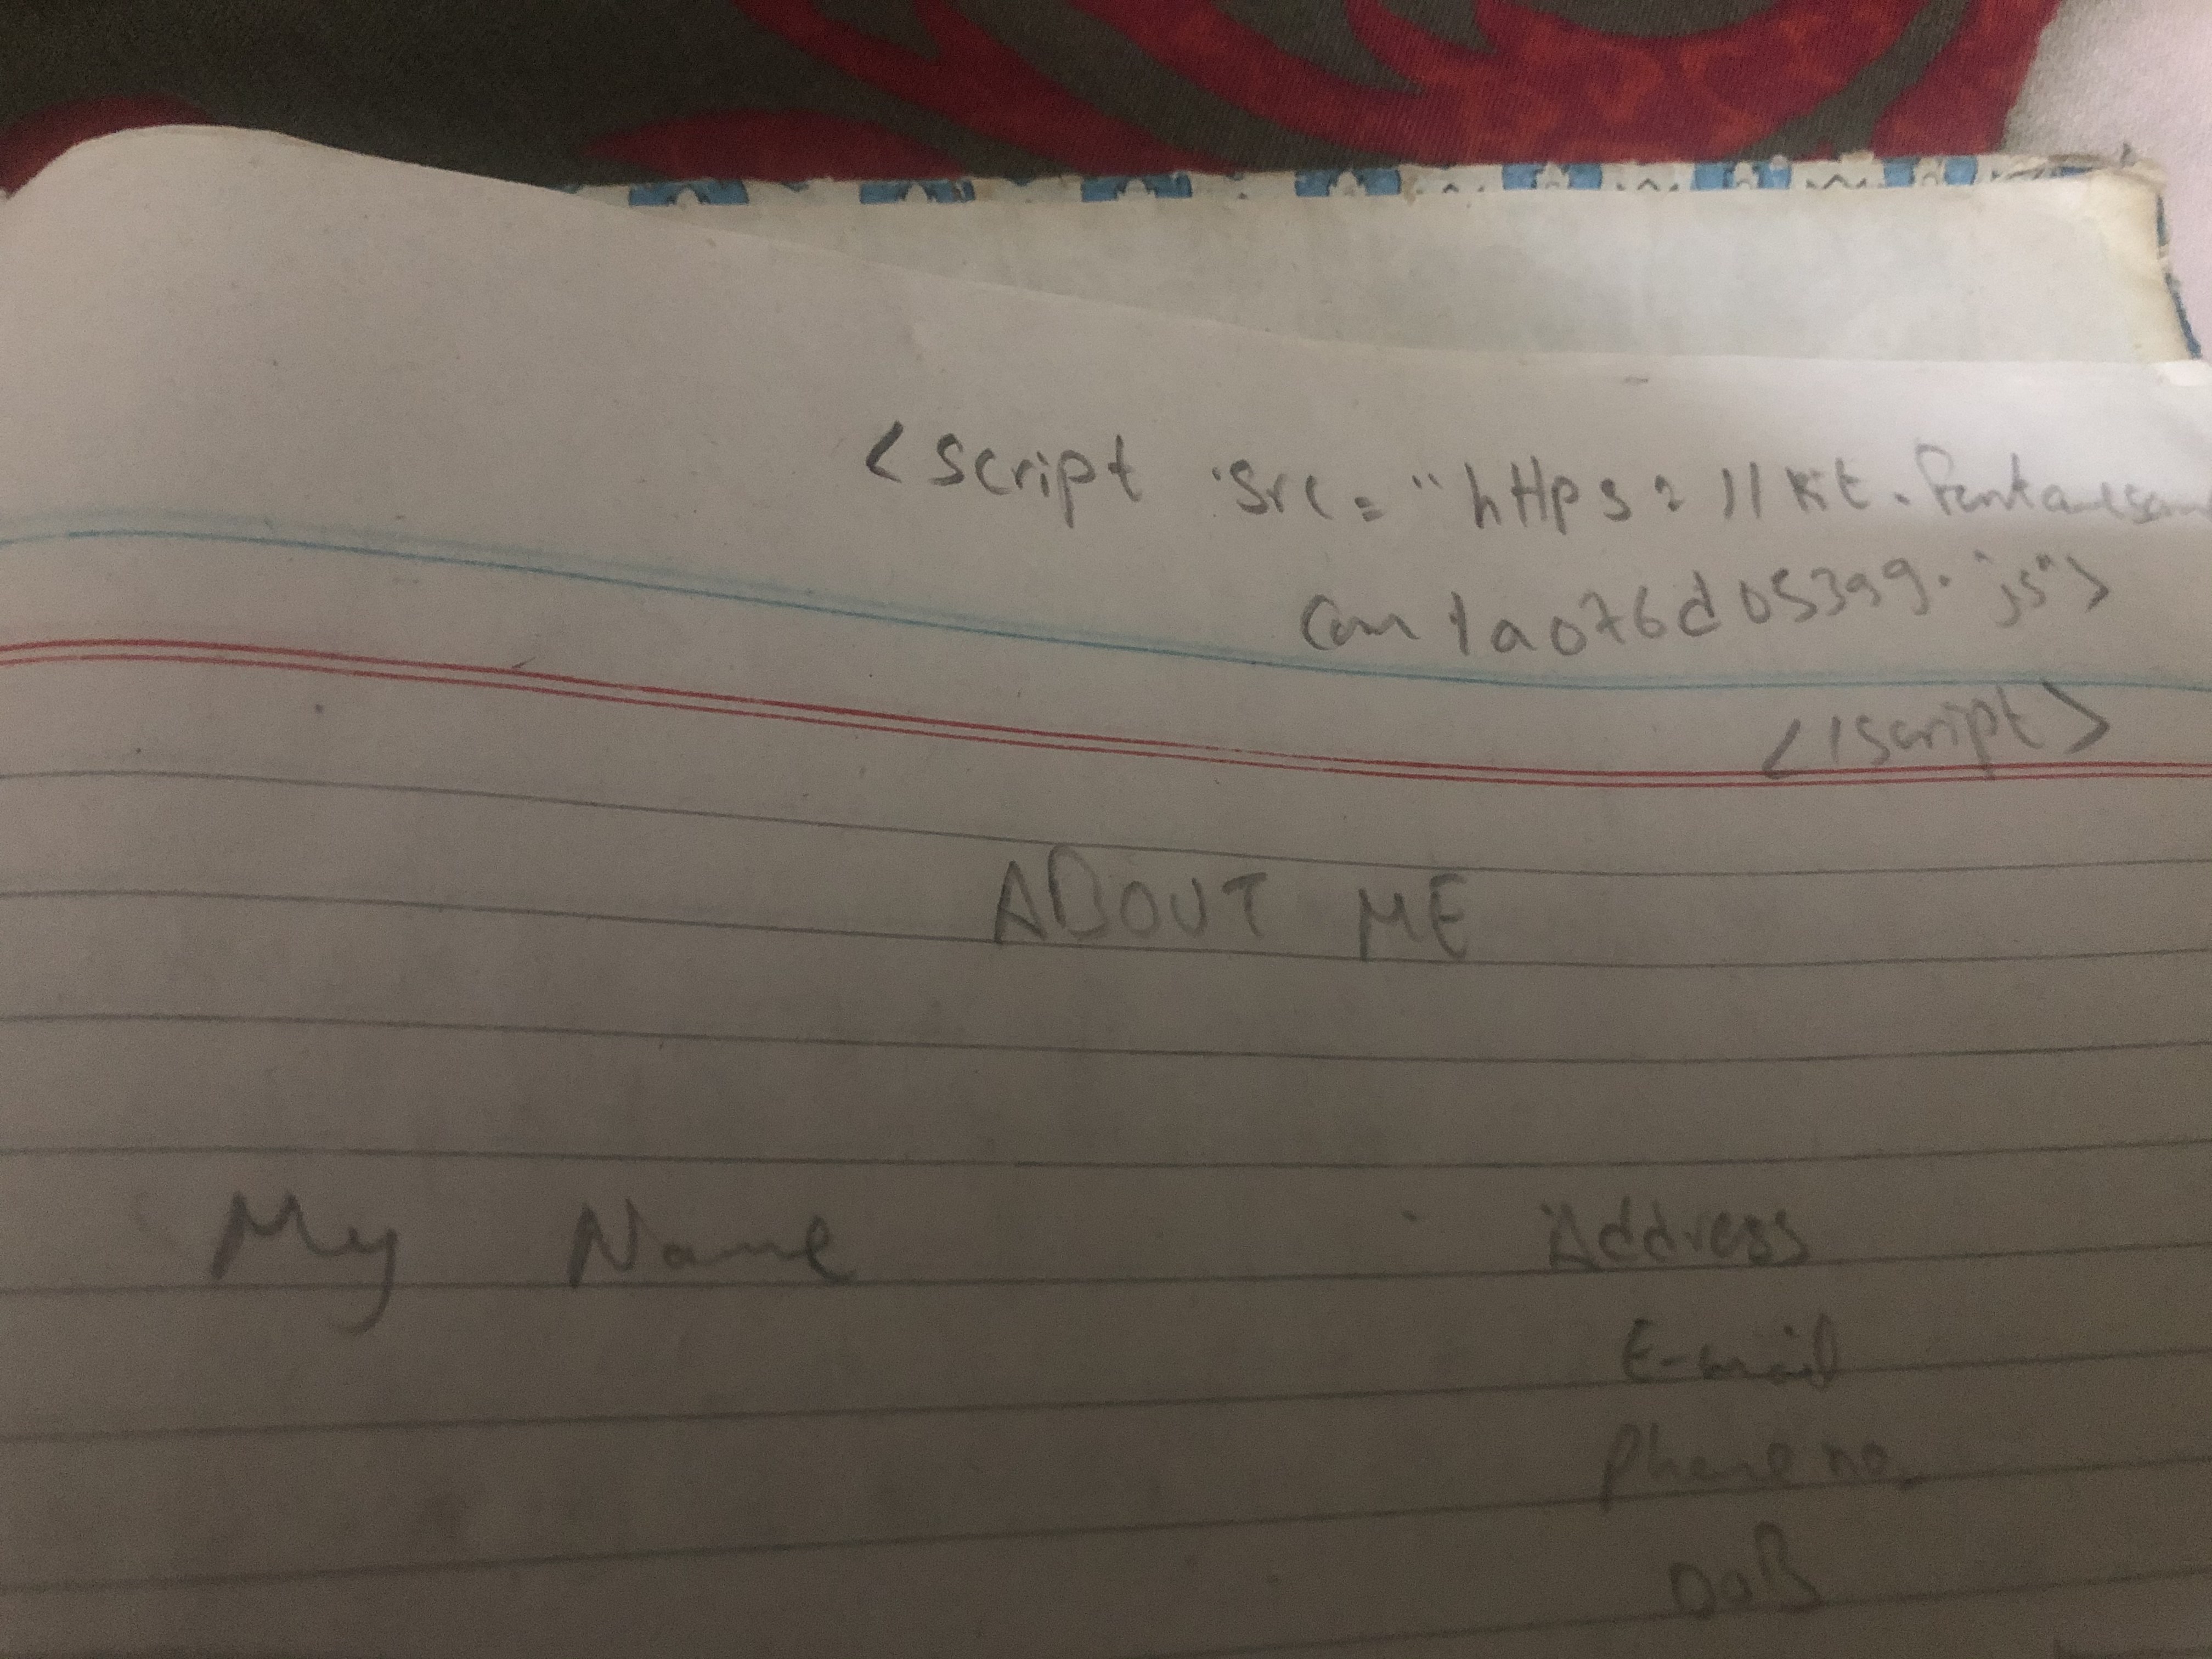 <script src="https://kit.
com/a076d05399.js">
</script>
ABOUT ME
My Name Address
E-mail
Phone no.
DoB